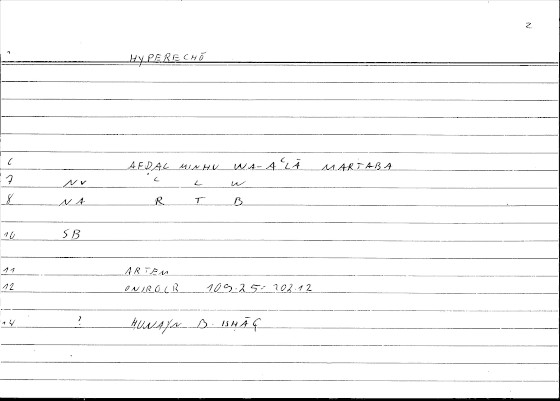 2
HYPERECHŌ
6 AFDAL MINHU WA-AʿLĀ MARTABA
7 NV ʿ L W
8 NA R T B
10 SB
11 ARTEM
12 ONIROCR 109.25 = 202.12
14 ? HUNAYN B. ISHĀQ